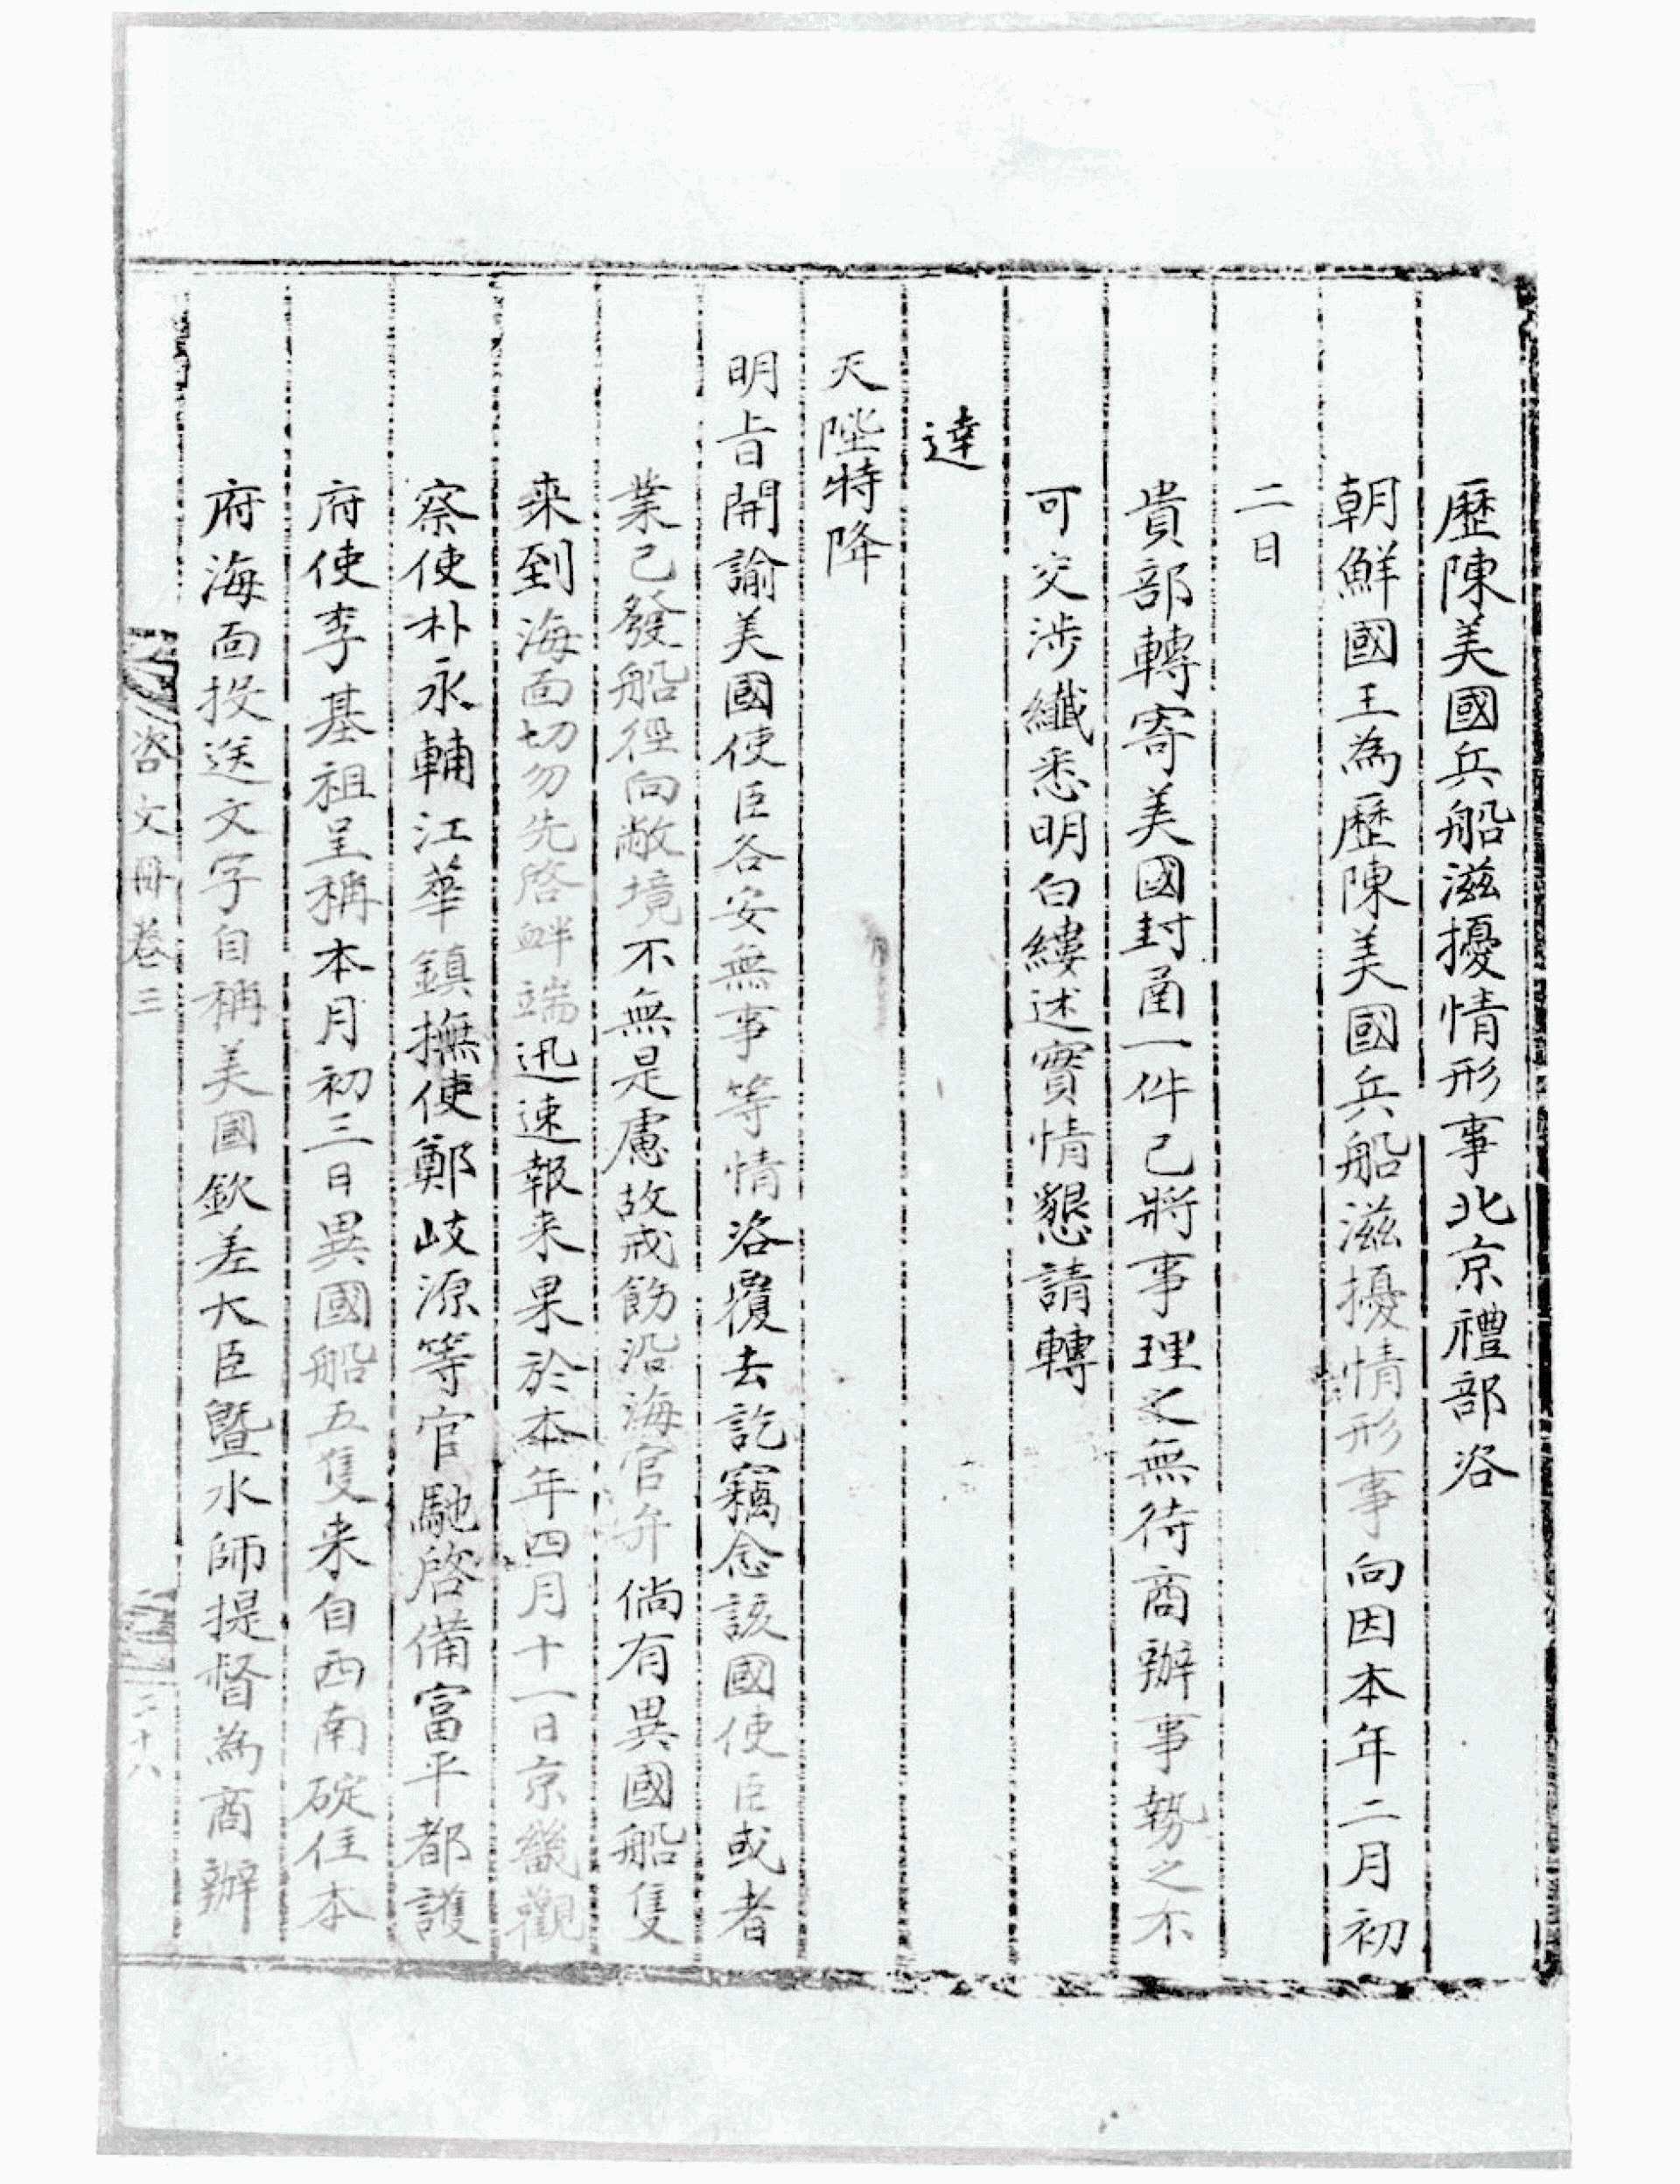 歷陳美國兵船滋擾情形事北京禮部咨
朝鮮國王為歷陳美國兵船滋擾情形事向因本年二月初
二日
貴部轉寄美國封函一件已將事理之無待商辦事勢之不
可交涉纖悉明白縷述實情懇請轉
達
天陛特降
明旨開諭美國使臣各安無事等情咨覆去訖竊念該國使臣或者
業已發船徑向敝境不無是慮故戒飭沿海官弁倘有異國船隻
来到海面切勿先啓衅端迅速報来果於本年四月十一日京畿觀
察使朴永輔江華鎮撫使鄭岐源等官馳啓備富平都護
府使李基祖呈稱本月初三日異國船五隻来自西南碇住本
府海面投送文字自稱美國欽差大臣曁水師提督為商辦
咨文冊卷三
二十八